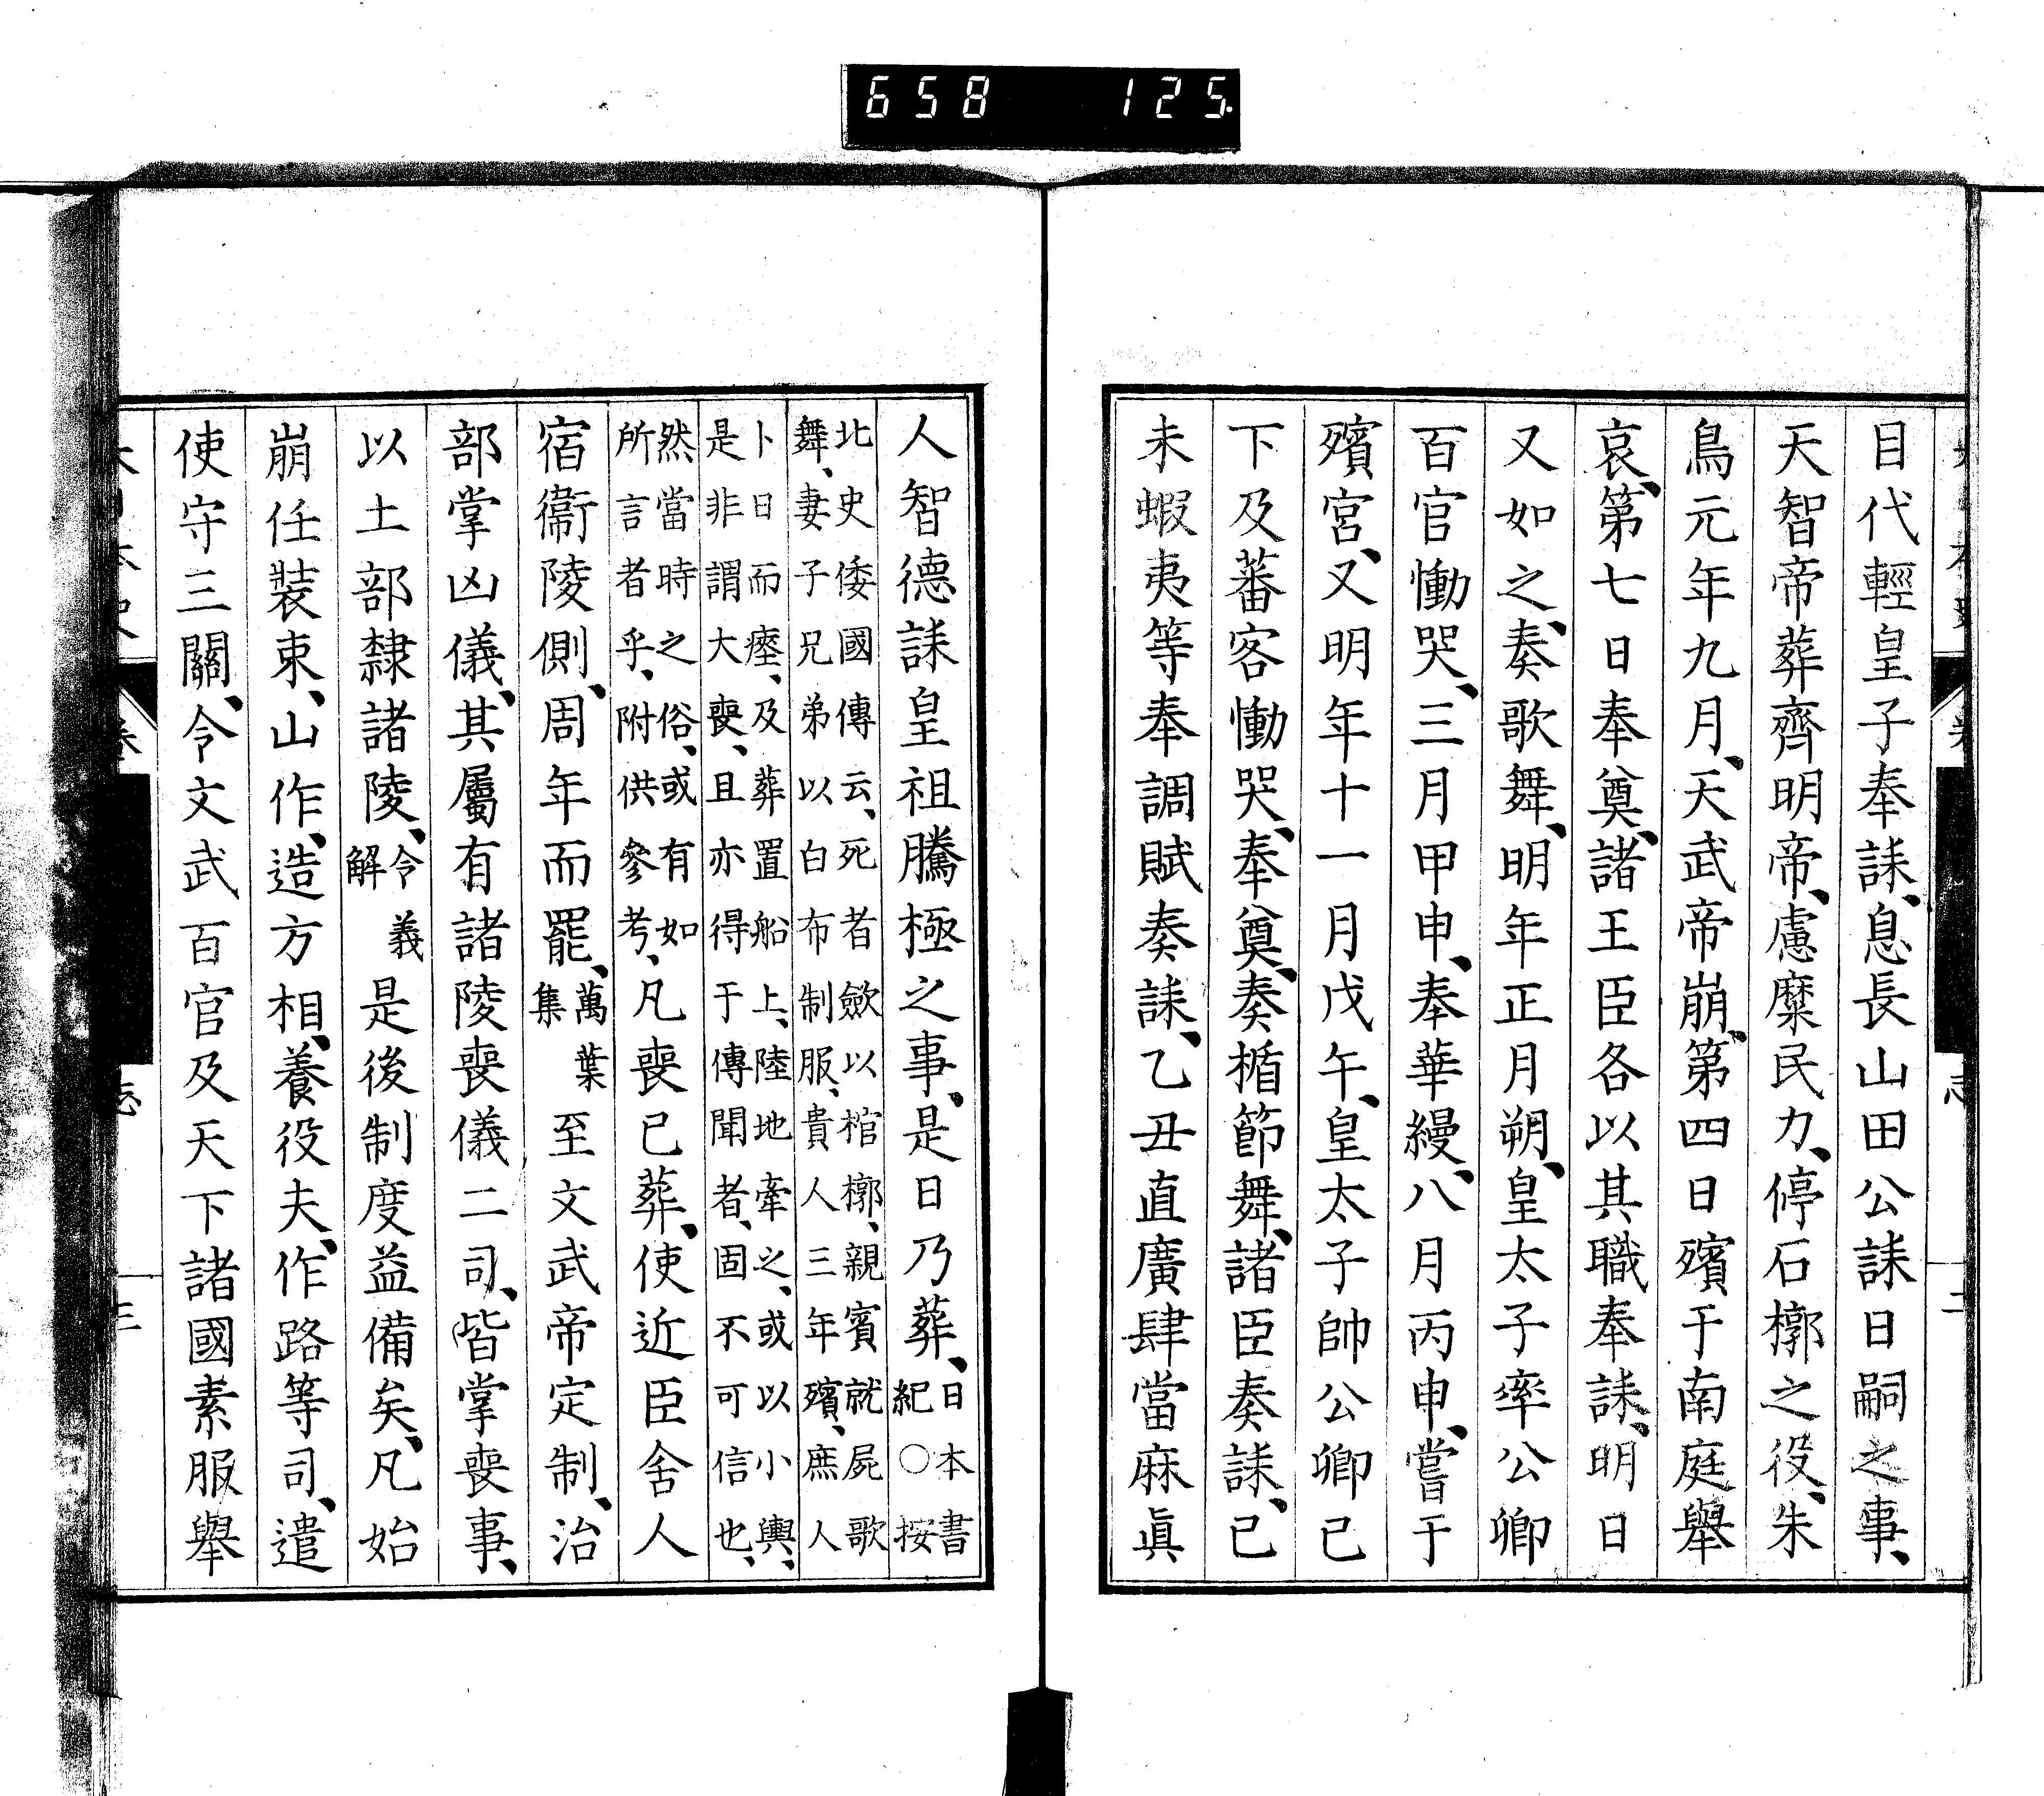 658 125
目代輕皇子奉誄、息長山田公誄日嗣之事、
天智帝葬齊明帝、慮糜民力、停石槨之役、朱
鳥元年九月、天武帝崩、第四日殯于南庭擧
哀、第七日奉奠、諸王臣各以其職奉誄、明日
又如之、奏歌舞、明年正月朔、皇太子率公卿
百官慟哭、三月甲申、奉華縵、八月丙申、嘗于
殯宮、又明年十一月戊午、皇太子帥公卿已
下及蕃客慟哭、奉奠、奏楯節舞、諸臣奏誄、己
未蝦夷等奉調賦奏誄、乙丑直廣肆當麻眞
人智德誄皇祖騰極之事、是日乃葬、日本書紀○按
北史倭國傳云、死者斂以棺槨、親賓就屍歌
舞、妻子兄弟以白布制服、貴人三年殯、庶人
卜日而瘞、及葬置船上、陸地牽之、或以小輿、
是非謂大喪、且亦得于傳聞者、固不可信也、
然當時之俗、或有如
所言者乎、附供參考、凡喪已葬、使近臣舍人
宿衞陵側、周年而罷、萬葉集至文武帝定制、治
部掌凶儀、其屬有諸陵喪儀二司、皆掌喪事、
以土部隸諸陵、令義解是後制度益備矣、凡始
崩任裝束、山作、造方相、養役夫、作路等司、遣
使守三關、令文武百官及天下諸國素服擧